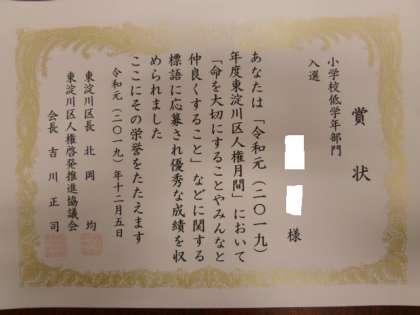 賞状
小学校低学年部門
入選
様
あなたは「令和元(二〇一九)
年度東淀川区人権月間」において
「命を大切にすることやみんなと
仲良くすること」などに関する
標語に応募され優秀な成績を収
められました
ここにその栄誉をたたえます
令和元(二〇一九)年十二月五日
東淀川区長 北岡 均
東淀川区人権啓発推進協議会
会長 吉川正司